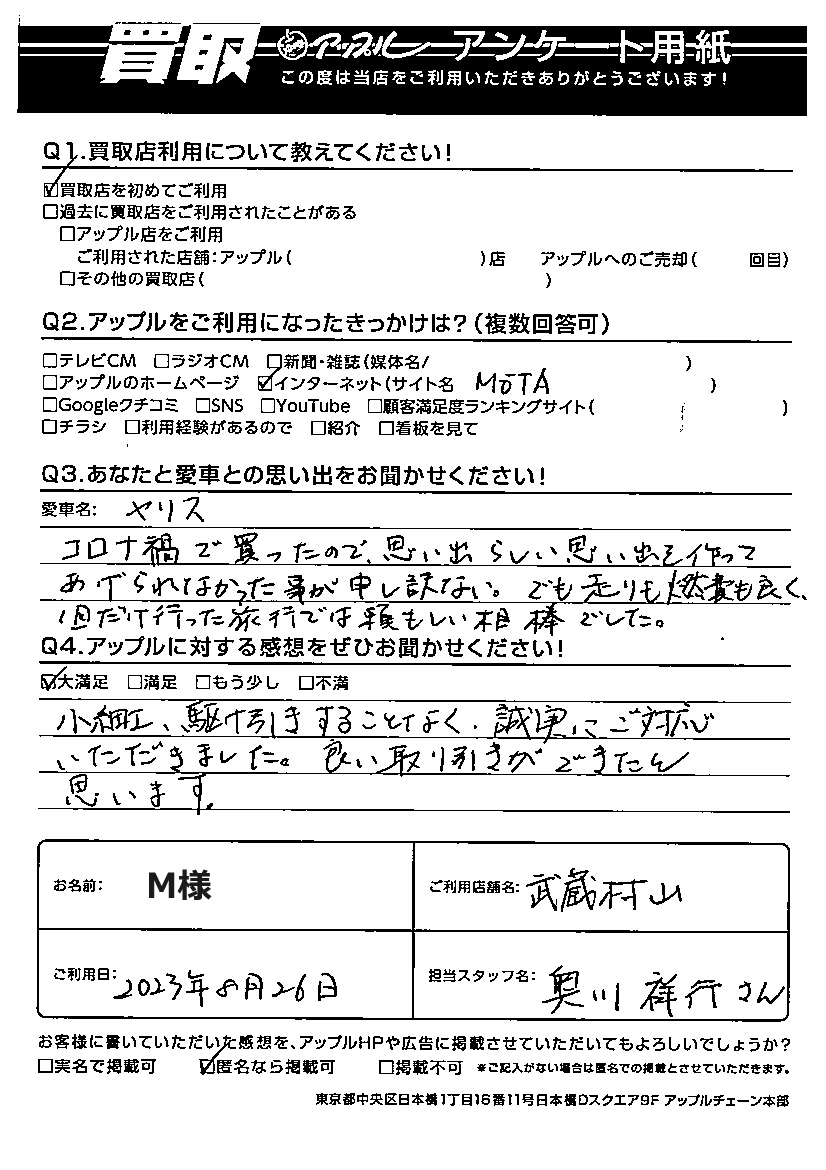 買取 アップル アンケート用紙
この度は当店をご利用いただきありがとうございます!
Q1.買取店利用について教えてください!
☑買取店を初めてご利用
□過去に買取店をご利用されたことがある
□アップル店をご利用
ご利用された店舗:アップル( )店 アップルへのご売却( 回目)
□その他の買取店( )
Q2.アップルをご利用になったきっかけは?(複数回答可)
□テレビCM □ラジオCM □新聞・雑誌(媒体名/ )
□アップルのホームページ ☑インターネット(サイト名 MOTA )
□Googleクチコミ □SNS □YouTube □顧客満足度ランキングサイト( )
□チラシ □利用経験があるので □紹介 □看板を見て
Q3.あなたと愛車との思い出をお聞かせください!
愛車名: ヤリス
コロナ禍で買ったので、思い出らしい思い出を作って
あげられなかった事が申し訳ない。でも走りも燃費も良く、
1回だけ行った旅行では頼もしい相棒でした。
Q4.アップルに対する感想をぜひお聞かせください!
☑大満足 □満足 □もう少し □不満
小細工、駆け引きすることなく、誠実にご対応
いただきました。良い取り引きができたと
思います。
お名前: M様 ご利用店舗名: 武蔵村山
ご利用日: 2023年8月26日 担当スタッフ名: 奥川 祥行さん
お客様に書いていただいた感想を、アップルHPや広告に掲載させていただいてもよろしいでしょうか?
□実名で掲載可 ☑匿名なら掲載可 □掲載不可 *ご記入がない場合は匿名での掲載とさせていただきます。
東京都中央区日本橋1丁目16番11号日本橋Dスクエア9F アップルチェーン本部